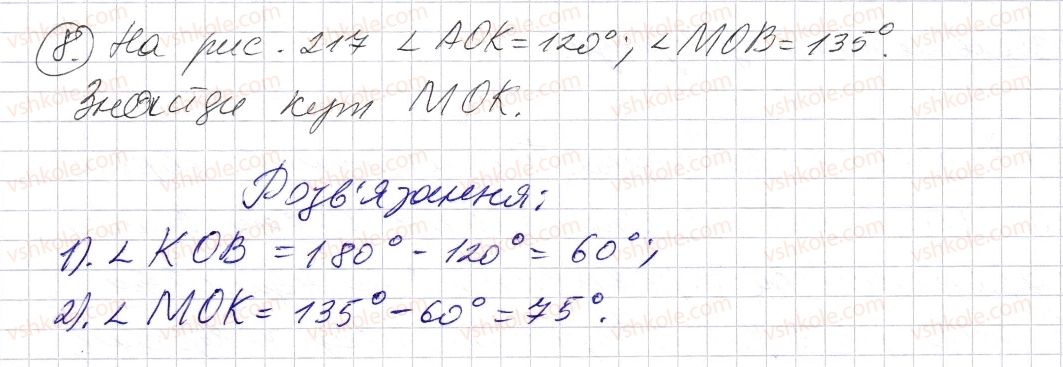 8. На рис. 217 ∠AOK = 120°; ∠MOB = 135°.
Знайди кут MOK.
Розв'язання:
1). ∠KOB = 180° - 120° = 60°;
2). ∠MOK = 135° - 60° = 75°.